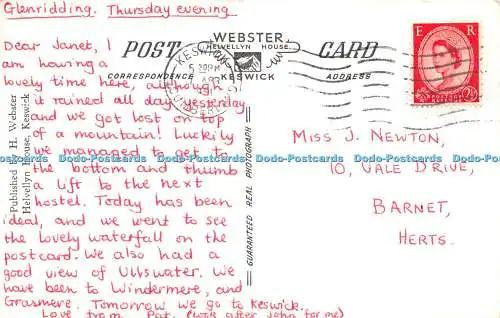 Glenridding. Thursday evening
Dear Janet, I
am having a
lovely time here, although
it rained all day yesterday
and we got lost on top
of a mountain! Luckily
we managed to get to
the bottom and thumb
a lift to the next
hostel. Today has been
ideal, and we went to see
the lovely waterfall on the
postcard. We also had a
good view of Ullswater. We
have been to Windermere, and
Grasmere. Tomorrow we go to Keswick.
Love from Pat. (Look after John for me)
POST CARD
CORRESPONDENCE ADDRESS
WEBSTER
HELVELLYN HOUSE
KESWICK
Published by H. Webster
Helvellyn House, Keswick
GUARANTEED REAL PHOTOGRAPH
KESWICK
CUMBERLAND
E R
POSTAGE REVENUE
2½D
MISS J. NEWTON,
10, VALE DRIVE,
BARNET,
HERTS.
Dodo-Postcards Dodo-Postcards Dodo-Postcards Dodo-Postcards Dodo-Postcards